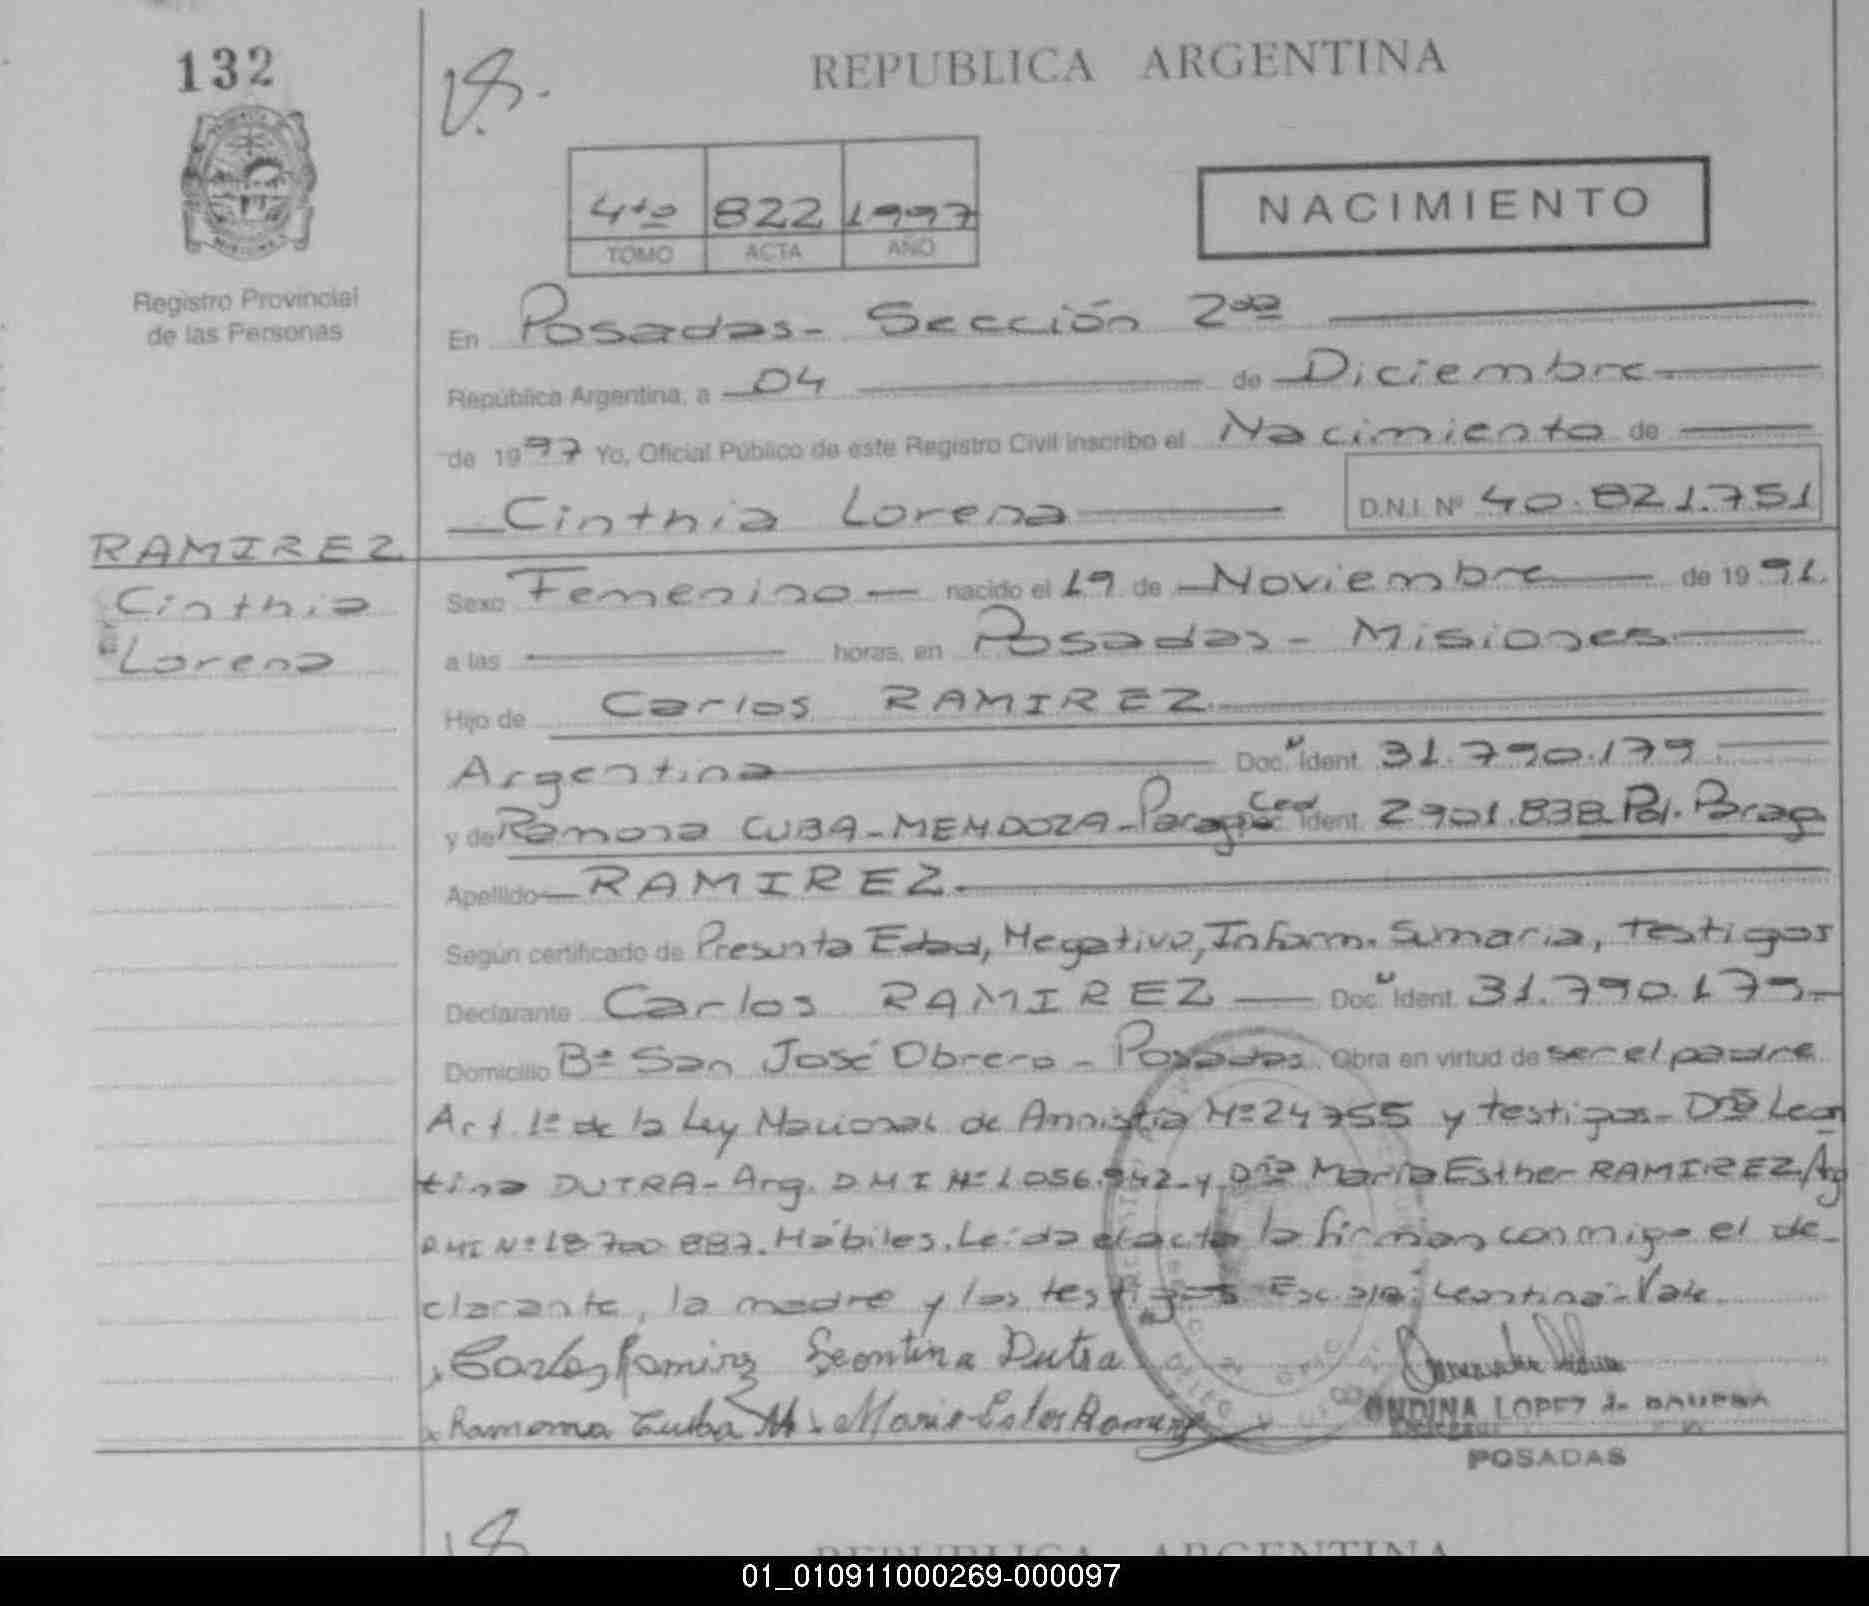 132
REPUBLICA ARGENTINA
4to 822 1997
TOMO ACTA AÑO
NACIMIENTO
Registro Provincial
de las Personas
En Posadas - Sección 2da
República Argentina, a 04 de Diciembre
de 1997 Yo, Oficial Público de este Registro Civil inscribo el Nacimiento de
Cinthia Lorena D.N.I. Nº 40.821.751
RAMIREZ
Cinthia
Lorena
Sexo Femenino nacido el 19 de Noviembre de 1991.
a las horas, en Posadas - Misiones
Hijo de Carlos RAMIREZ
Argentina Doc. Ident. 31.790.179
y de Ramona CUBA-MENDOZA - Parag. Ced Ident. 2901.838 Pol. Parag
Apellido RAMIREZ.
Según certificado de Presunta Edad, Negativo, Inform. Sumaria, testigos
Declarante Carlos RAMIREZ Doc. Ident. 31.790.179-
Domicilio Bº San José Obrero - Posadas. Obra en virtud de ser el padre
Art. 1º de la Ley Nacional de Amnistía Nº 24755 y testigos - Dña Leon
tina DUTRA - Arg. DNI Nº 1.056.942 - y Dña María Esther RAMIREZ/Arg
DNI Nº 18.700.887. Hábiles. Leída el acta la firman conmigo el de-
clarante, la madre y los testigos Leontina - Vale.
Carlos Ramirez Leontina Dutra
Ramona Cuba M Maria Ester Ramirez
ONDINA LOPEZ de
POSADAS
REPUBLICA ARGENTINA
01_010911000269-000097